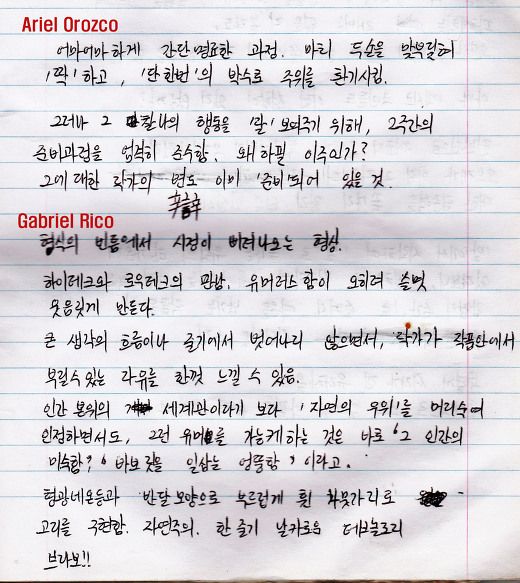 Ariel Orozco
어마어마하게 간단명료한 과정. 마치 두손을 맞부딪혀
'짝'하고, '단한번'의 박수로 주위를 환기시킴.
그러나 그 찰나의 행동을 '잘' 보여주기 위해, 2주간의
준비과정을 엄격히 준수함. 왜하필 이주이가?
그에 대한 작가의 변도 이미 '준비'되어 있을 것.
辯
Gabriel Rico
형식의 빈틈에서 시정이 비려나오는 형상.
하이테크와 로우테크의 만남. 유머러스함이 오히려 슬몃
웃음짓게 만든다.
큰 생각의 흐름이나 줄기에서 벗어나지 않으면서, 작가가 작품안에서
부릴수있는 자유를 한껏 느낄 수 있음.
인간 본위의 세계관이라기 보다 '자연의 우위'를 머리숙여
인정하면서도, 그런 유머를 가능케하는 것은 바로 '그 인간의
미숙함?' '바보짓을 일삼는 엉뚱함'이라고.
형광네온등과 반달모양으로 부드럽게 휜 나뭇가리로
고리를 구현함. 자연주의. 한 줄기 날카로운 테크놀로지
브라보!!